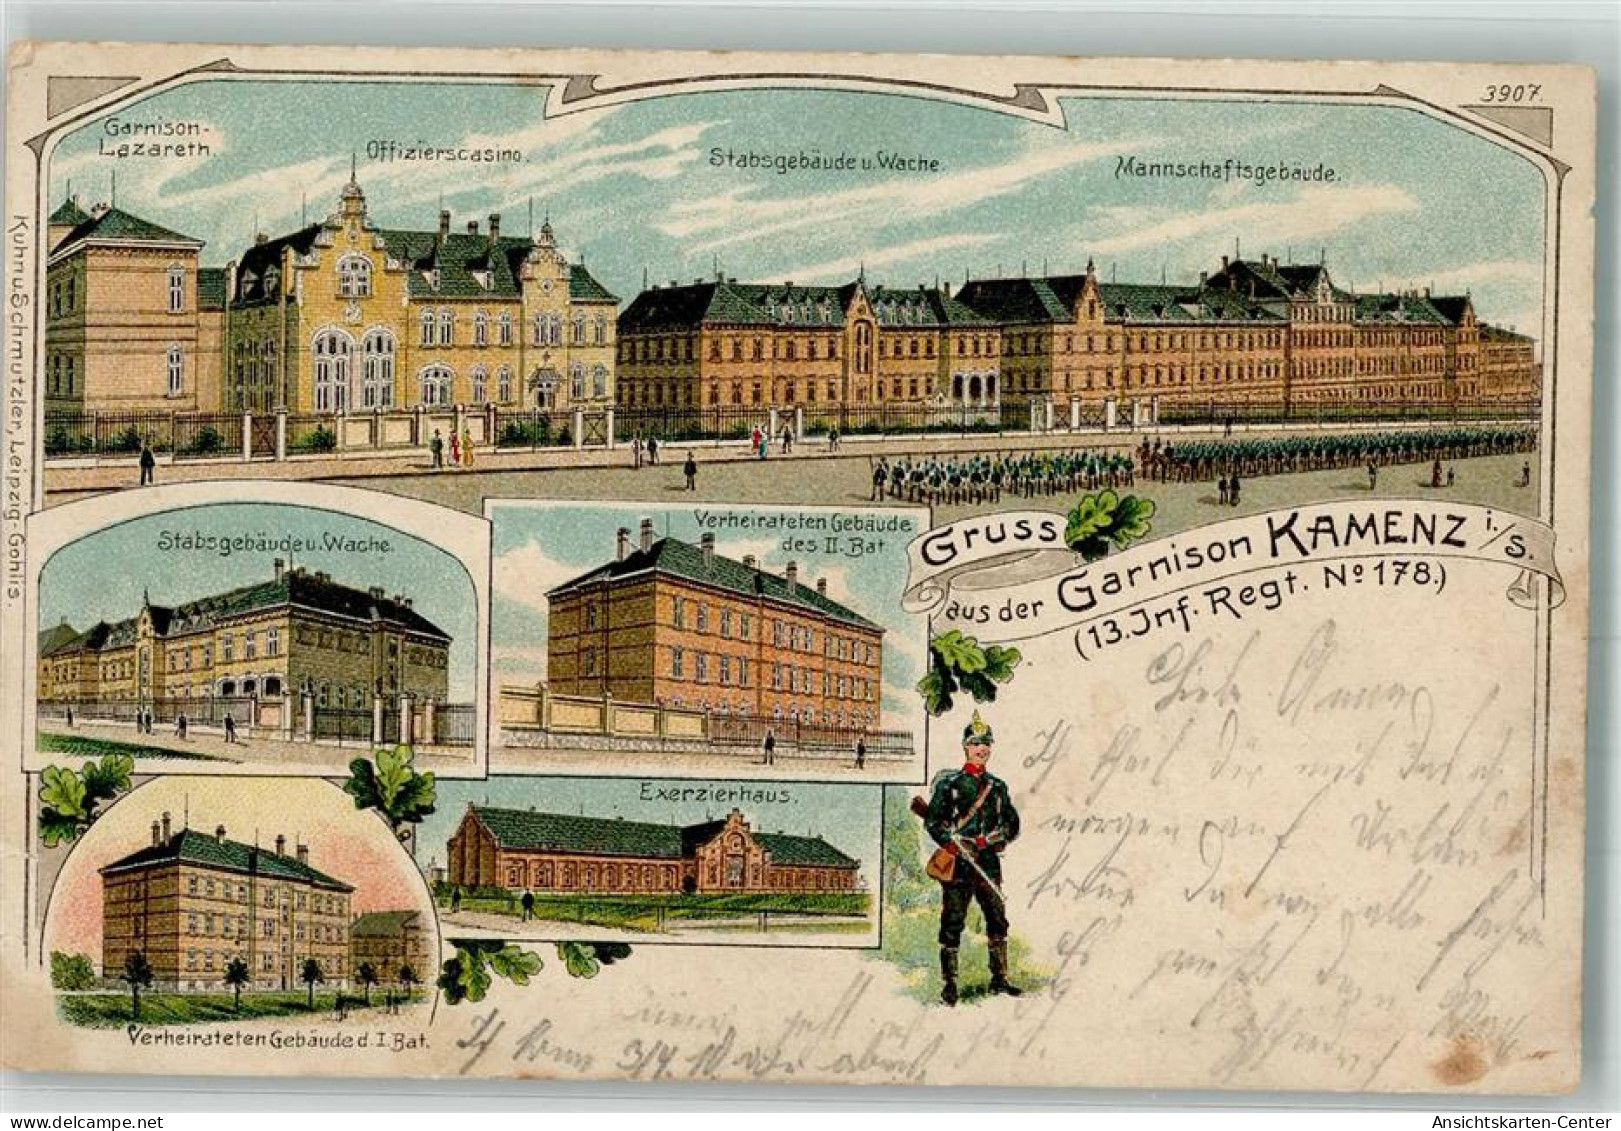 3907.
Garnison-
Lazareth.
Offizierscasino.
Stabsgebäude u. Wache.
Mannschaftsgebäude.
Kuhn u. Schmutzler, Leipzig-Gohlis.
Stabsgebäude u. Wache.
Verheirateten Gebäude
des II. Bat.
Gruss
aus der Garnison KAMENZ i./S.
(13. Inf. Regt. No 178.)
Exerzierhaus.
Verheirateten Gebäude d. I. Bat.
Liebe Anna
Ich theil dir mit das ich
morgen auf Urlaub
komme
Es grüßt dein
Ich komme 3/4 10 Uhr
Ansichtskarten-Center